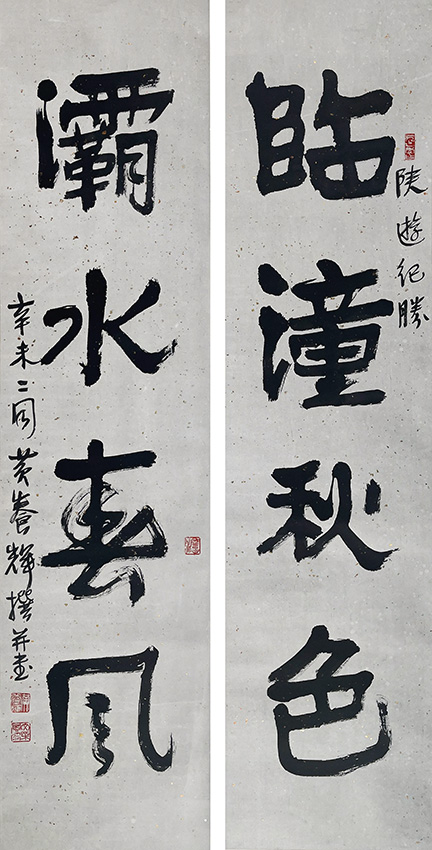 臨潼秋色
陝遊紀勝
灞水春风
辛未二 黄養輝撰并書